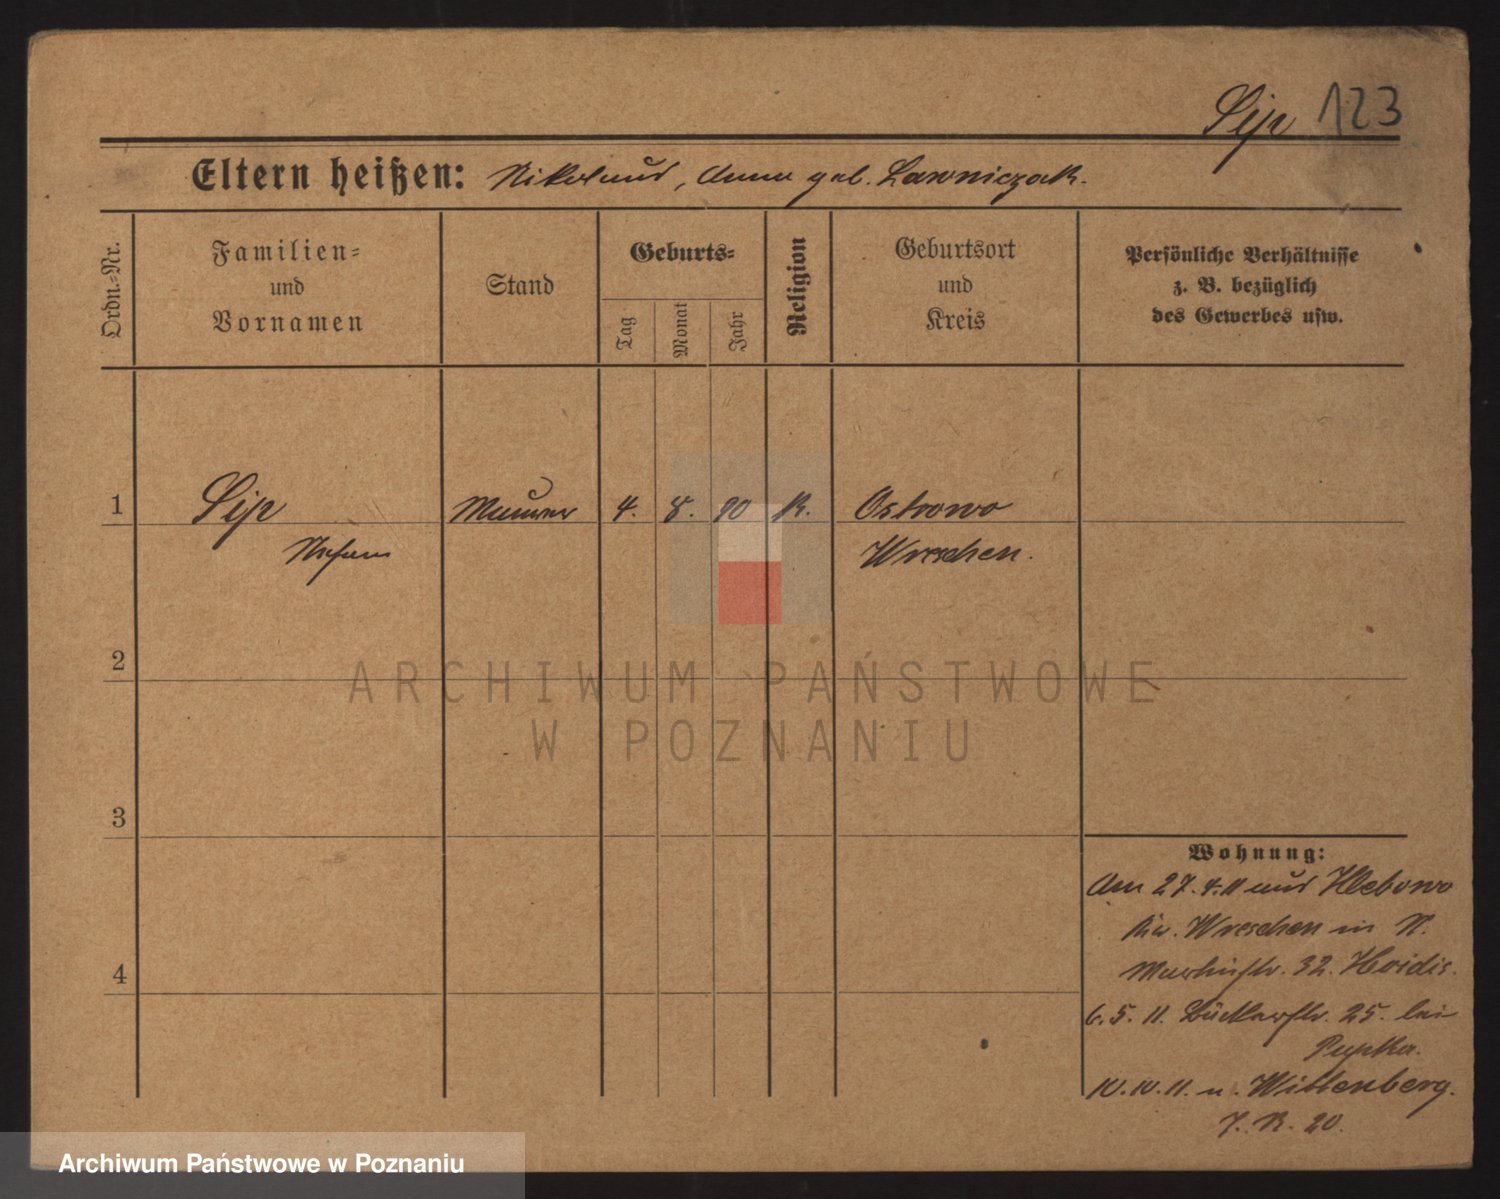 Sip 123
Eltern heißen: Nikolaus, Anna geb. Lawniczak.
Ordn.-Nr.
Familien-
und
Vornamen
Stand
Geburts-
Tag
Monat
Jahr
Religion
Geburtsort
und
Kreis
Persönliche Verhältnisse
z. B. bezüglich
des Gewerbes usw.
1 Sip Maurer 4. 8. 90 K. Ostrowo
Stefan Wreschen.
2
3
4
Wohnung:
Am 27.4.11 aus Chlebowo
Kr. Wreschen in
Martinstr. 32.
6.5.11. Bäckerstr. 25. bei
10.10.11. n. Wittenberg.
J. R. 20.
ARCHIWUM PAŃSTWOWE
W POZNANIU
Archiwum Państwowe w Poznaniu